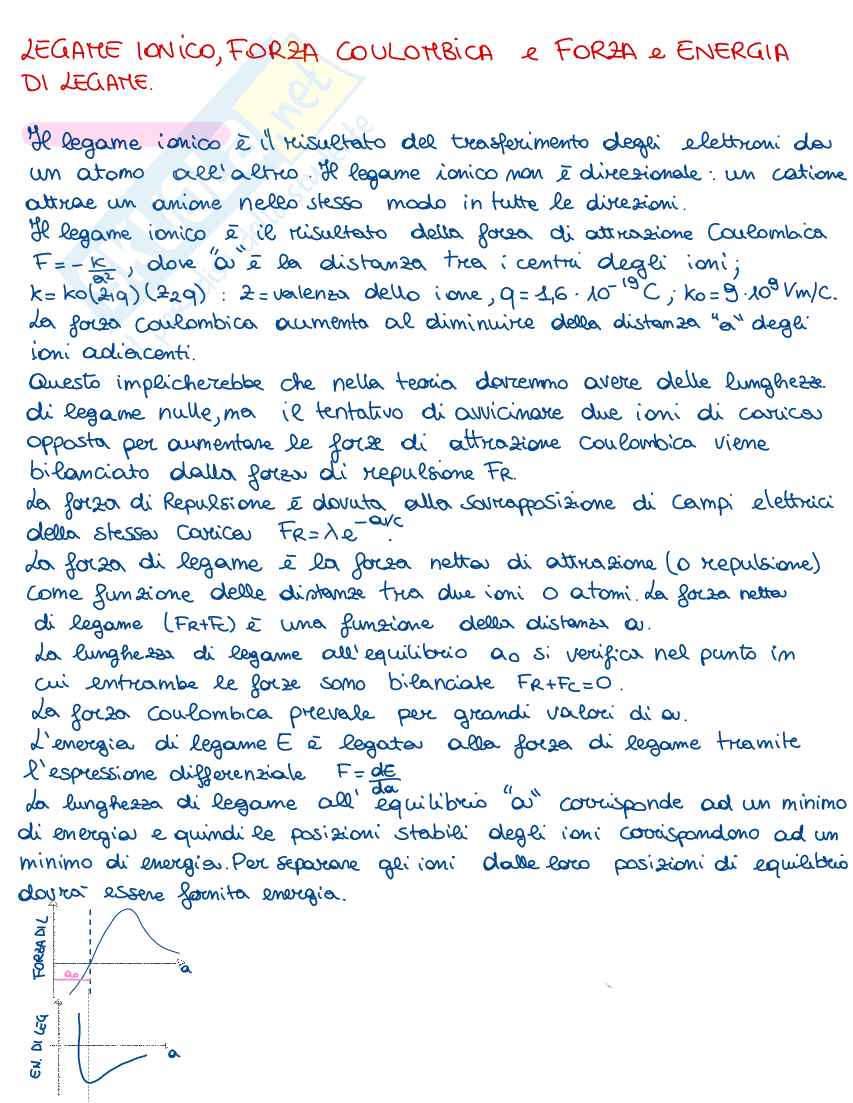 LEGAME IONICO, FORZA COULOMBICA e FORZA e ENERGIA
DI LEGAME.
Il legame ionico è il risultato del trasferimento degli elettroni da
un atomo all'altro. Il legame ionico non è direzionale: un catione
attrae un anione nello stesso modo in tutte le direzioni.
Il legame ionico è il risultato della forza di attrazione Coulombica
F = - K/a², dove "a" è la distanza tra i centri degli ioni;
K = K0(Z1q)(Z2q) : Z=valenza dello ione, q = 1,6 · 10⁻¹⁹C ; K0 = 9 · 10⁹ Vm/C.
La forza coulombica aumenta al diminuire della distanza "a" degli
ioni adiacenti.
Questo implicherebbe che nella teoria dovremmo avere delle lunghezze
di legame nulle, ma il tentativo di avvicinare due ioni di carica
opposta per aumentare le forze di attrazione coulombica viene
bilanciato dalla forza di repulsione FR.
La forza di Repulsione è dovuta alla sovrapposizione di campi elettrici
della stessa carica FR = λe^-a/c.
La forza di legame è la forza netta di attrazione (o repulsione)
come funzione delle distanze tra due ioni o atomi. La forza netta
di legame (FR+FC) è una funzione della distanza a.
La lunghezza di legame all'equilibrio a0 si verifica nel punto in
cui entrambe le forze sono bilanciate FR+FC=0.
La forza coulombica prevale per grandi valori di a.
L'energia di legame E è legata alla forza di legame tramite
l'espressione differenziale F = dE/da
La lunghezza di legame all'equilibrio "a" corrisponde ad un minimo
di energia e quindi le posizioni stabili degli ioni corrispondono ad un
minimo di energia. Per separare gli ioni dalle loro posizioni di equilibrio
dovrà essere fornita energia.
FORZA DI L
a0
a
EN. DI LEG
a